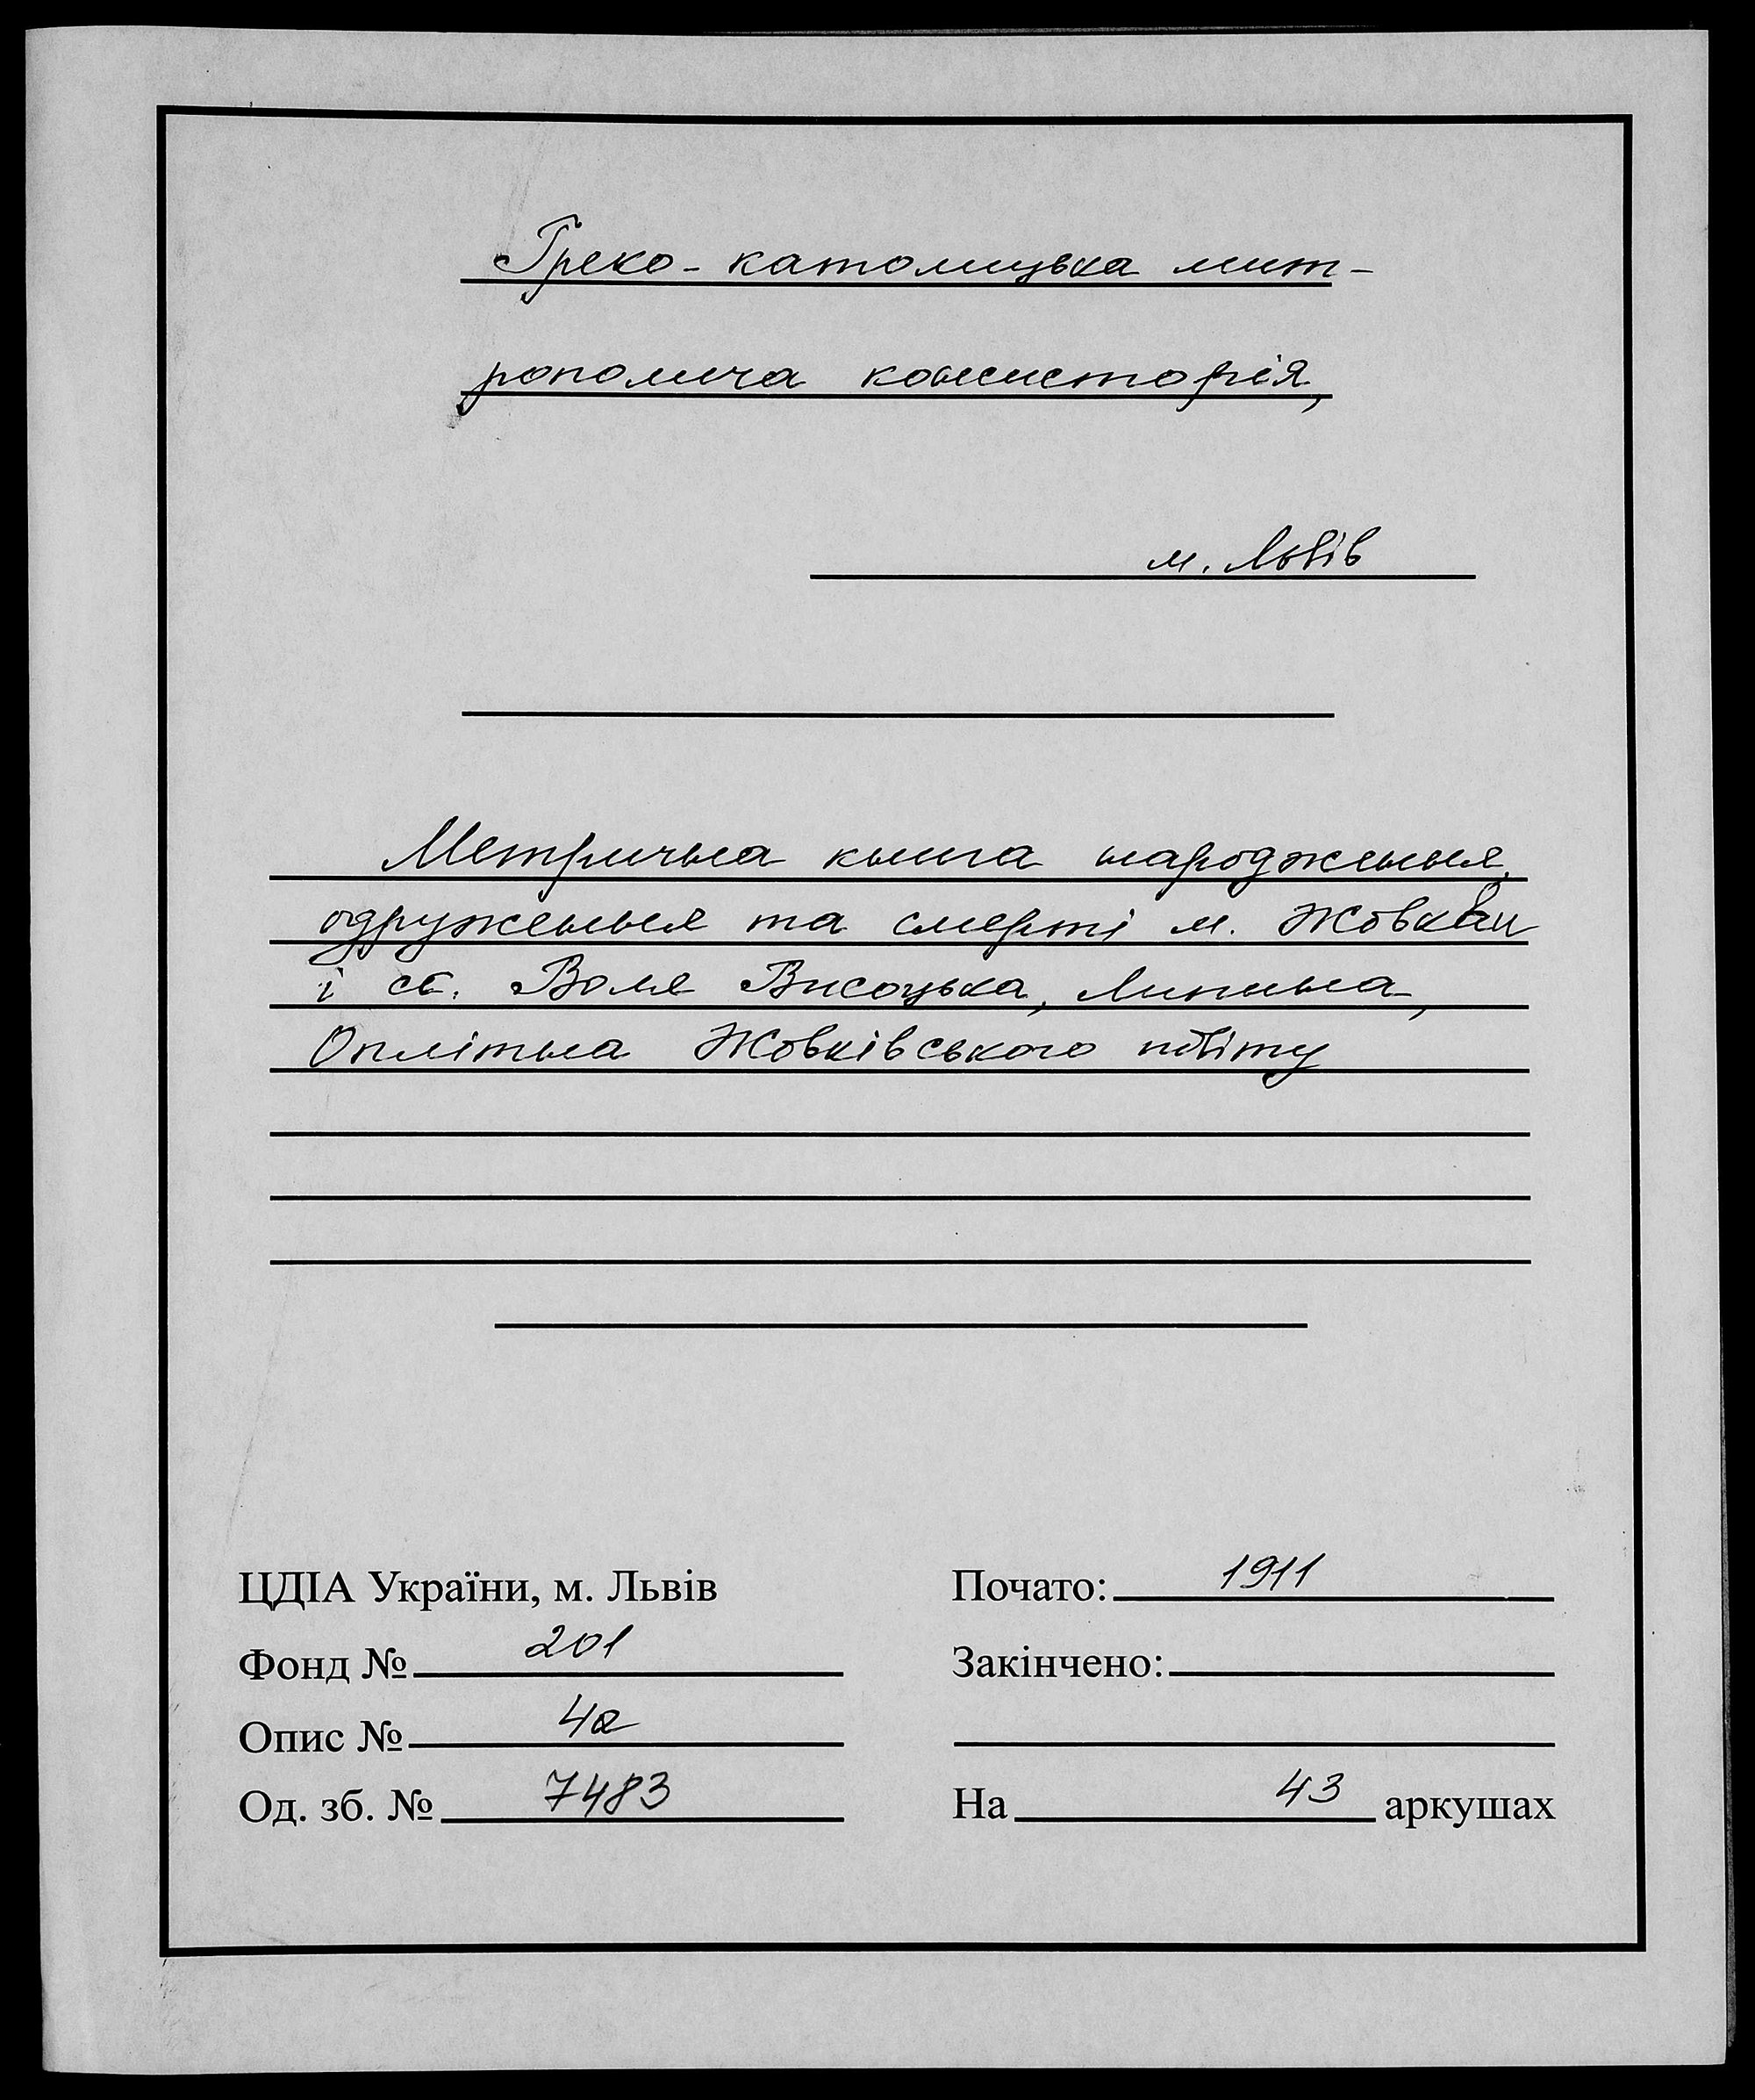 Греко-католицька мит-
рополича консисторія,
м. Львів
Метрична книга народження,
одруження та смерті м. Жовкви
і сс. Воля Висоцька, Липина,
Оплітна Жовківського повіту
ЦДІА України, м. Львів
Фонд № 201
Опис № 4а
Од. зб. № 7483
Почато: 1911
Закінчено:
На 43 аркушах